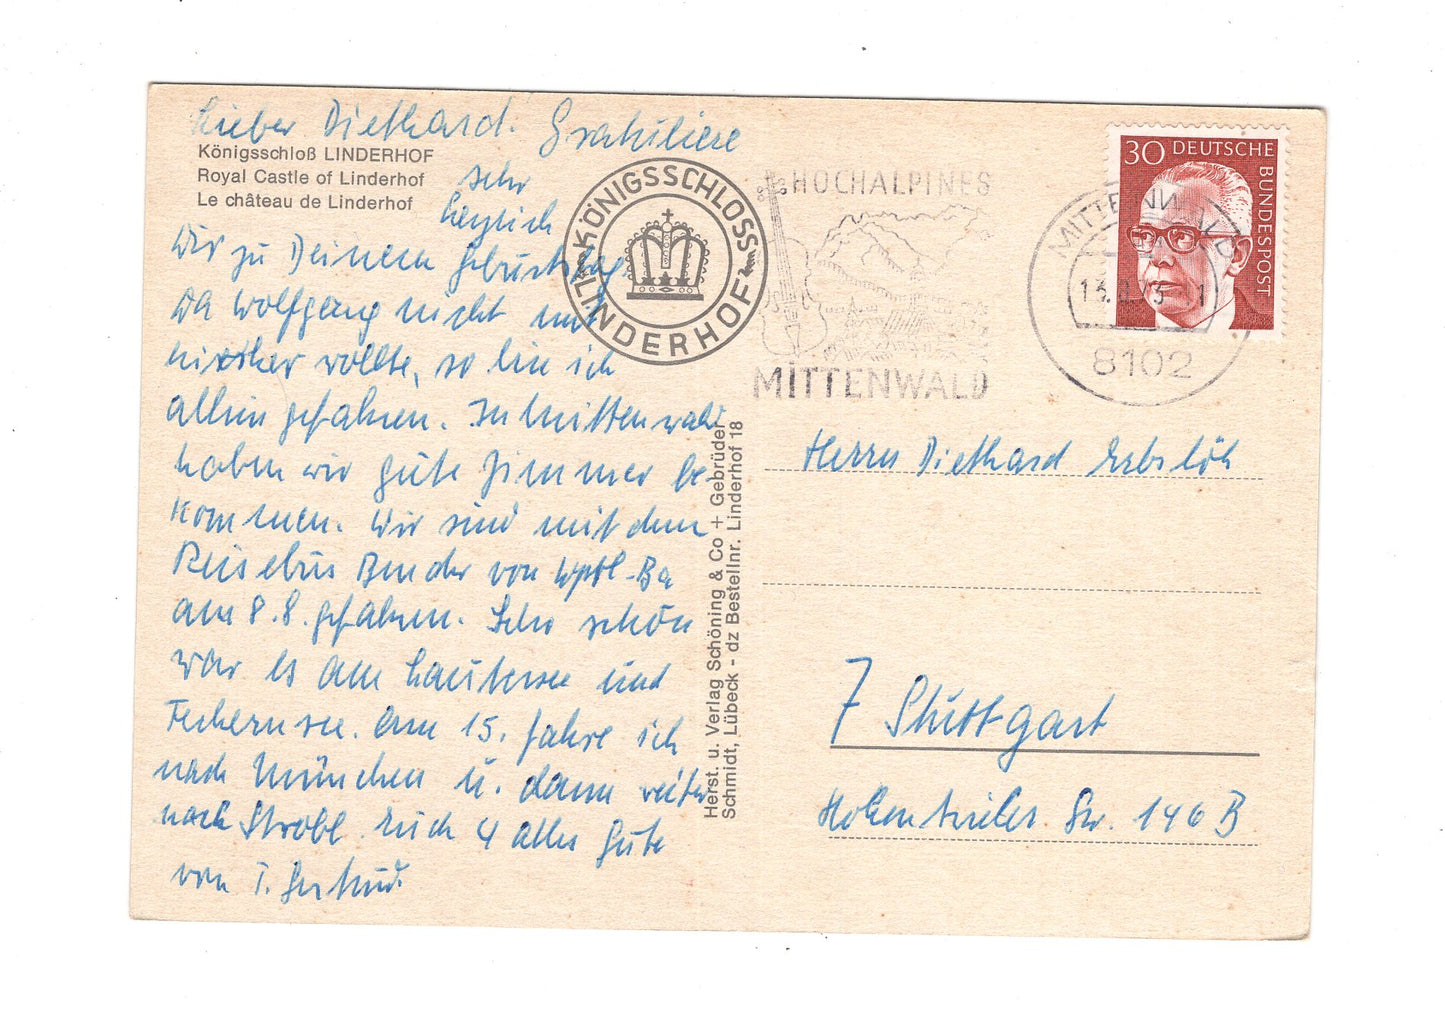 Lieber Diethard! Gratuliere
Königsschloß LINDERHOF
Royal Castle of Linderhof
Le château de Linderhof
sehr
herzlich
Dir zu Deinem Geburtstag
Da Wolfgang nicht mit
hierher wollte, so bin ich
allein gefahren. In Mittenwald
haben wir gute Zimmer be-
kommen. Wir sind mit dem
Reisebus von
am 8.8. gefahren. Sehr schön
war es am Lautersee und
Am 15. fahre ich
nach München u. dann weiter
nach Strobl. Euch 4 alles Gute
von T. Gertrud.
KÖNIGSSCHLOSS
LINDERHOF
HOCHALPINES
MITTENWALD
MITTENWALD
8102
30 DEUTSCHE
BUNDESPOST
Herst. u. Verlag Schöning & Co + Gebrüder
Schmidt, Lübeck - dz Bestellnr. Linderhof 18
Herrn Diethard Erbslöh
7 Stuttgart
Str. 146 B